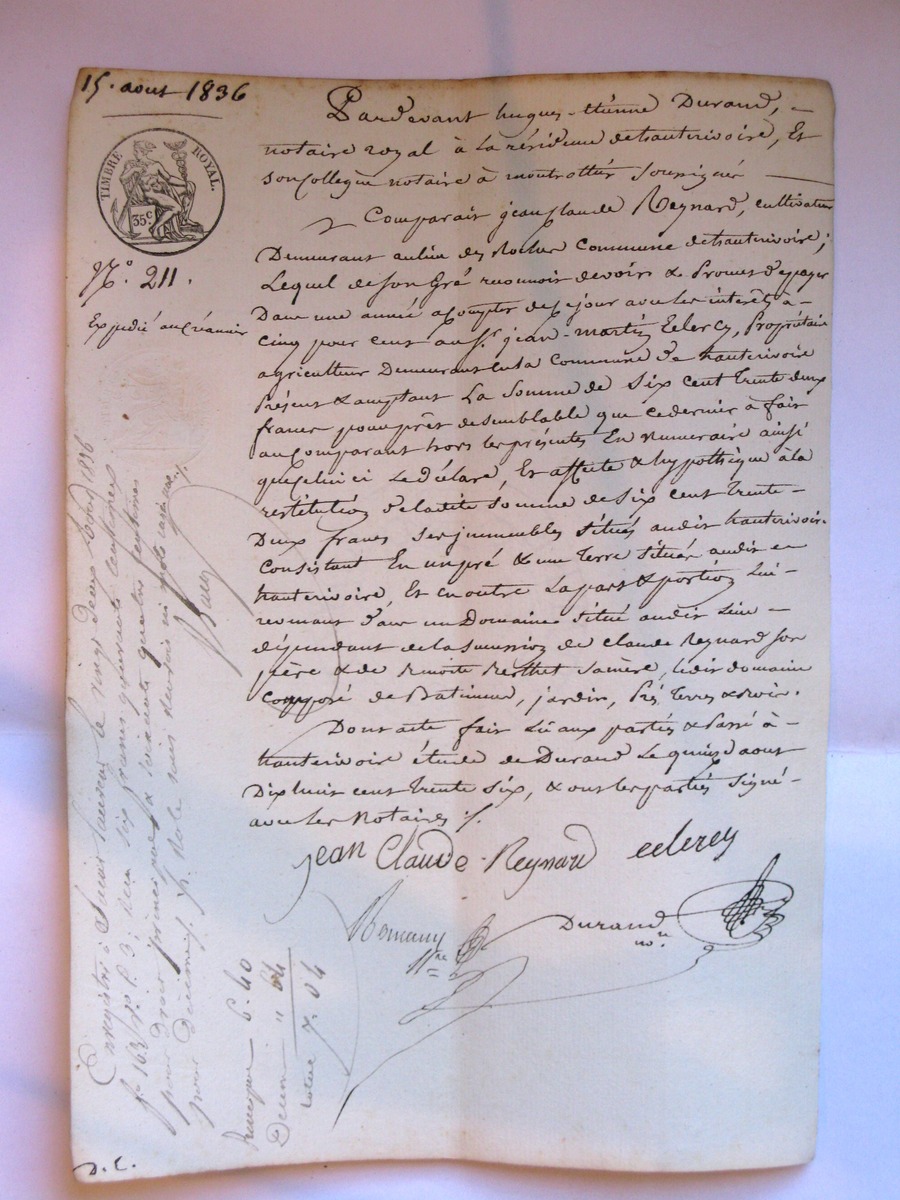 15. aout 1836
TIMBRE ROYAL.
35c.
N.° 211.
Expédié au Créancier
Pardevant hugues-étienne Durand,
notaire royal à la résidence dehauterivoire, Et
son Collègue notaire à montrottier Soussigné
Comparait jean Claude Reynard, cultivateur
Demeurant au lieu des Rocher Commune dehauterivoire;
Lequel de son gré reconnoit devoir & Promet de payer
Dans une année à compter de ce jour avec les intérêts à
cinq pour cent au Sr. jean-martin Eclercy, Propriétaire
agriculteur Demeurant en la Commune de hauterivoire
Présent & acceptant La Somme de Six Cent trente deux
francs pour prêt de semblable que ce dernier à fait
au Comparant hors les présentes En numeraire ainsi
que celui ci Le déclare, Et affecte & hypothèque à la
restitution de ladite Somme de six cent trente
Deux francs ses immeubles Situés audit hauterivoire
Consistant En un pré & une Terre Située audit
hauterivoire, Et en outre La part & portion Lui
revenant dans un Domaine Situé audit Lieu
dépendant de la succession de Claude Reynard son
père & de Benoite Berthet sa mère, ledit domaine
Composé de Batiment, jardin, Prés, Terres & bois.
Dont acte fait Lu aux parties & Passé à
hauterivoire étude de Durand Le quinze aout
Dix huit cent trente Six, & ont les parties signé
avec les Notaires ./.
jean Claude Reynard eclercy
Durand
no.re
Enregistré à le vingt deux aout 1836
f° 163 reçu six francs quarante centimes
pour droit principal & soixante quatre centimes
pour Décime ./.
Principal 6. 40
Decime " 64
total 7. 04
D. C.